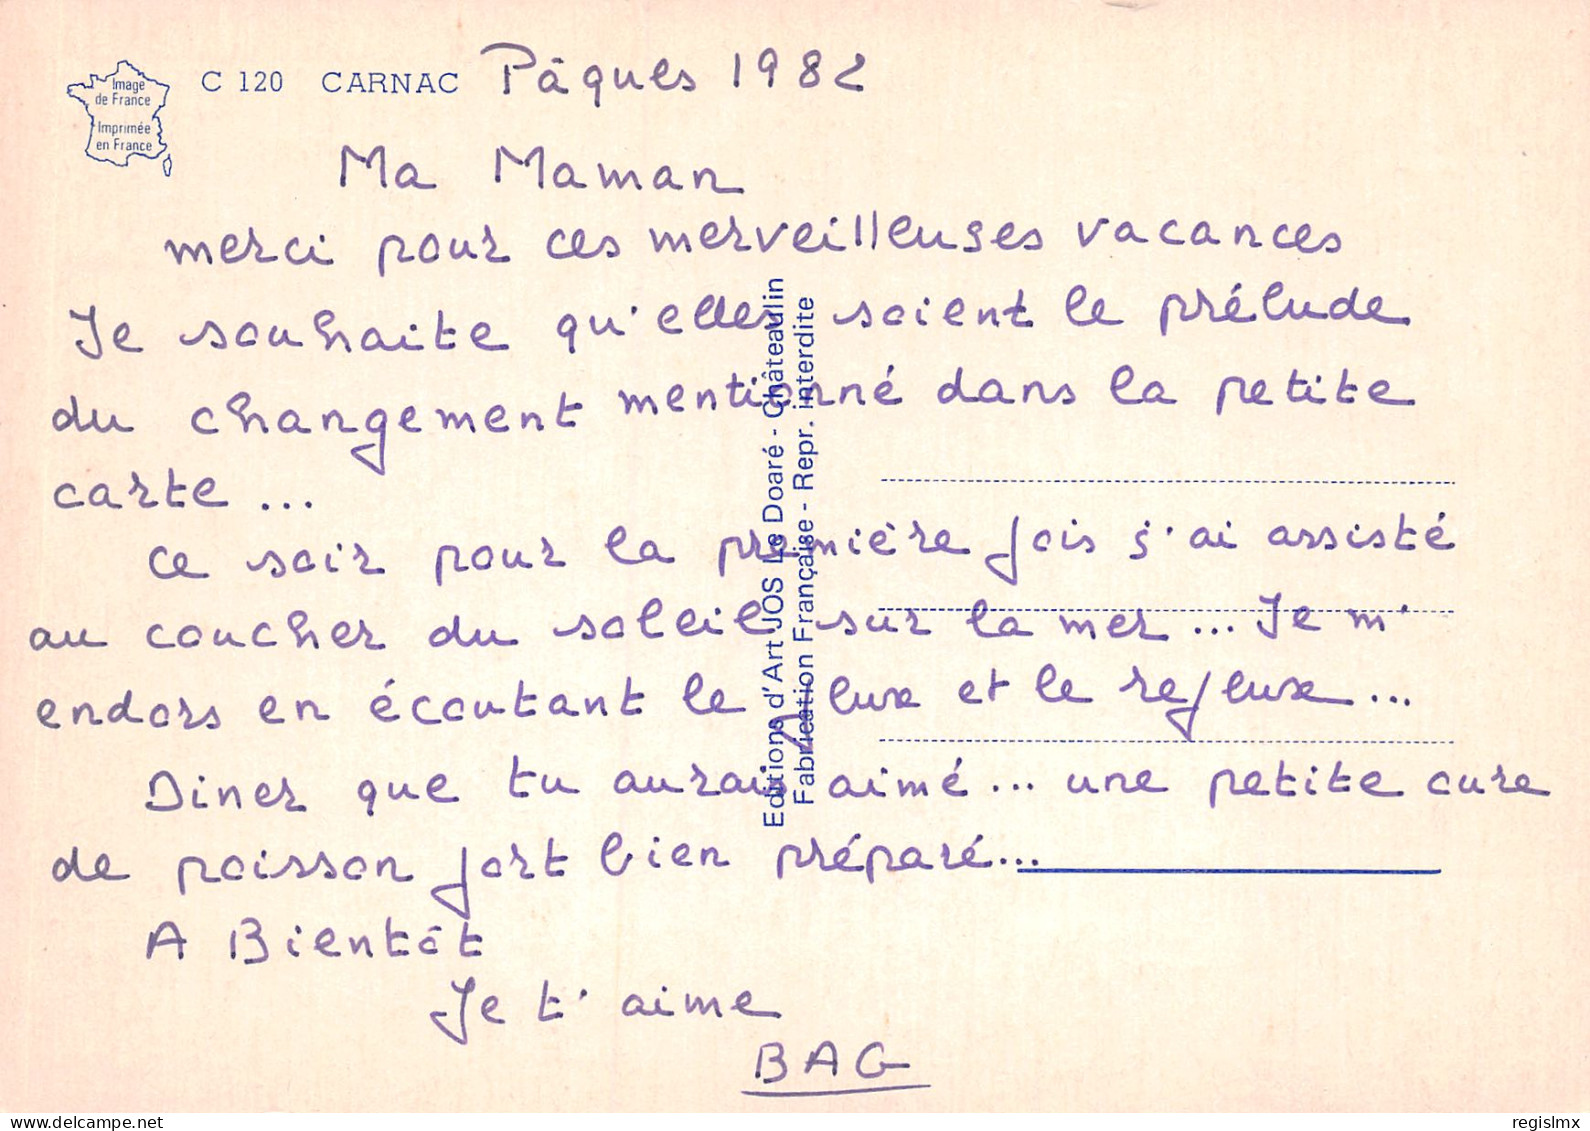 Image
de France
Imprimée
en France
C 120 CARNAC Pâques 1982
Ma Maman
merci pour ces merveilleuses vacances
Je souhaite qu'elles soient le prélude
du changement mentionné dans la petite
carte ...
ce soir pour la première fois j'ai assisté
au coucher du soleil sur la mer ... Je m'
endors en écoutant le flux et le reflux ...
Diner que tu aurais aimé ... une petite cure
de poisson fort bien préparé ...
A Bientôt
Je t'aime
BAG
Editions d'Art JOS Le Doaré - Châteaulin
Fabrication Française - Repr. interdite
delcampe.net
regislmx